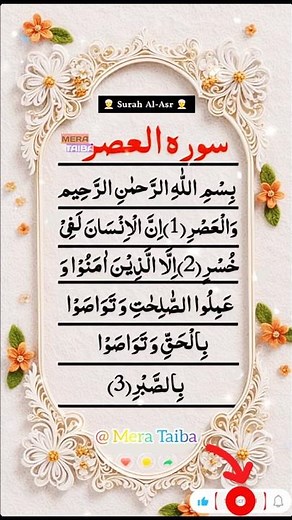 Surah Al-Asr
سورة العصر
MERA
TAIBA
بِسْمِ اللهِ الرَّحْمٰنِ الرَّحِيْمِ
وَالْعَصْرِ(1)اِنَّ الْاِنْسَانَ لَفِيْ
خُسْرٍ(2)اِلَّا الَّذِيْنَ اٰمَنُوْا وَ
عَمِلُوا الصّٰلِحٰتِ وَ تَوَاصَوْا
بِالْحَقِّ وَ تَوَاصَوْا
بِالصَّبْرِ(3)
@ Mera Taiba